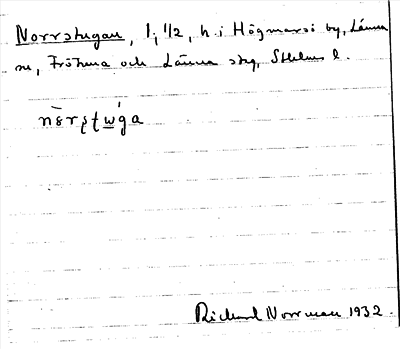 Norrstugan, 1, 1/2, h. i Högmarsö by, Länna
sn, Frötuna och Länna skg, Sthlms l.
nörʂʈwga
Rickard Norrman 1932.